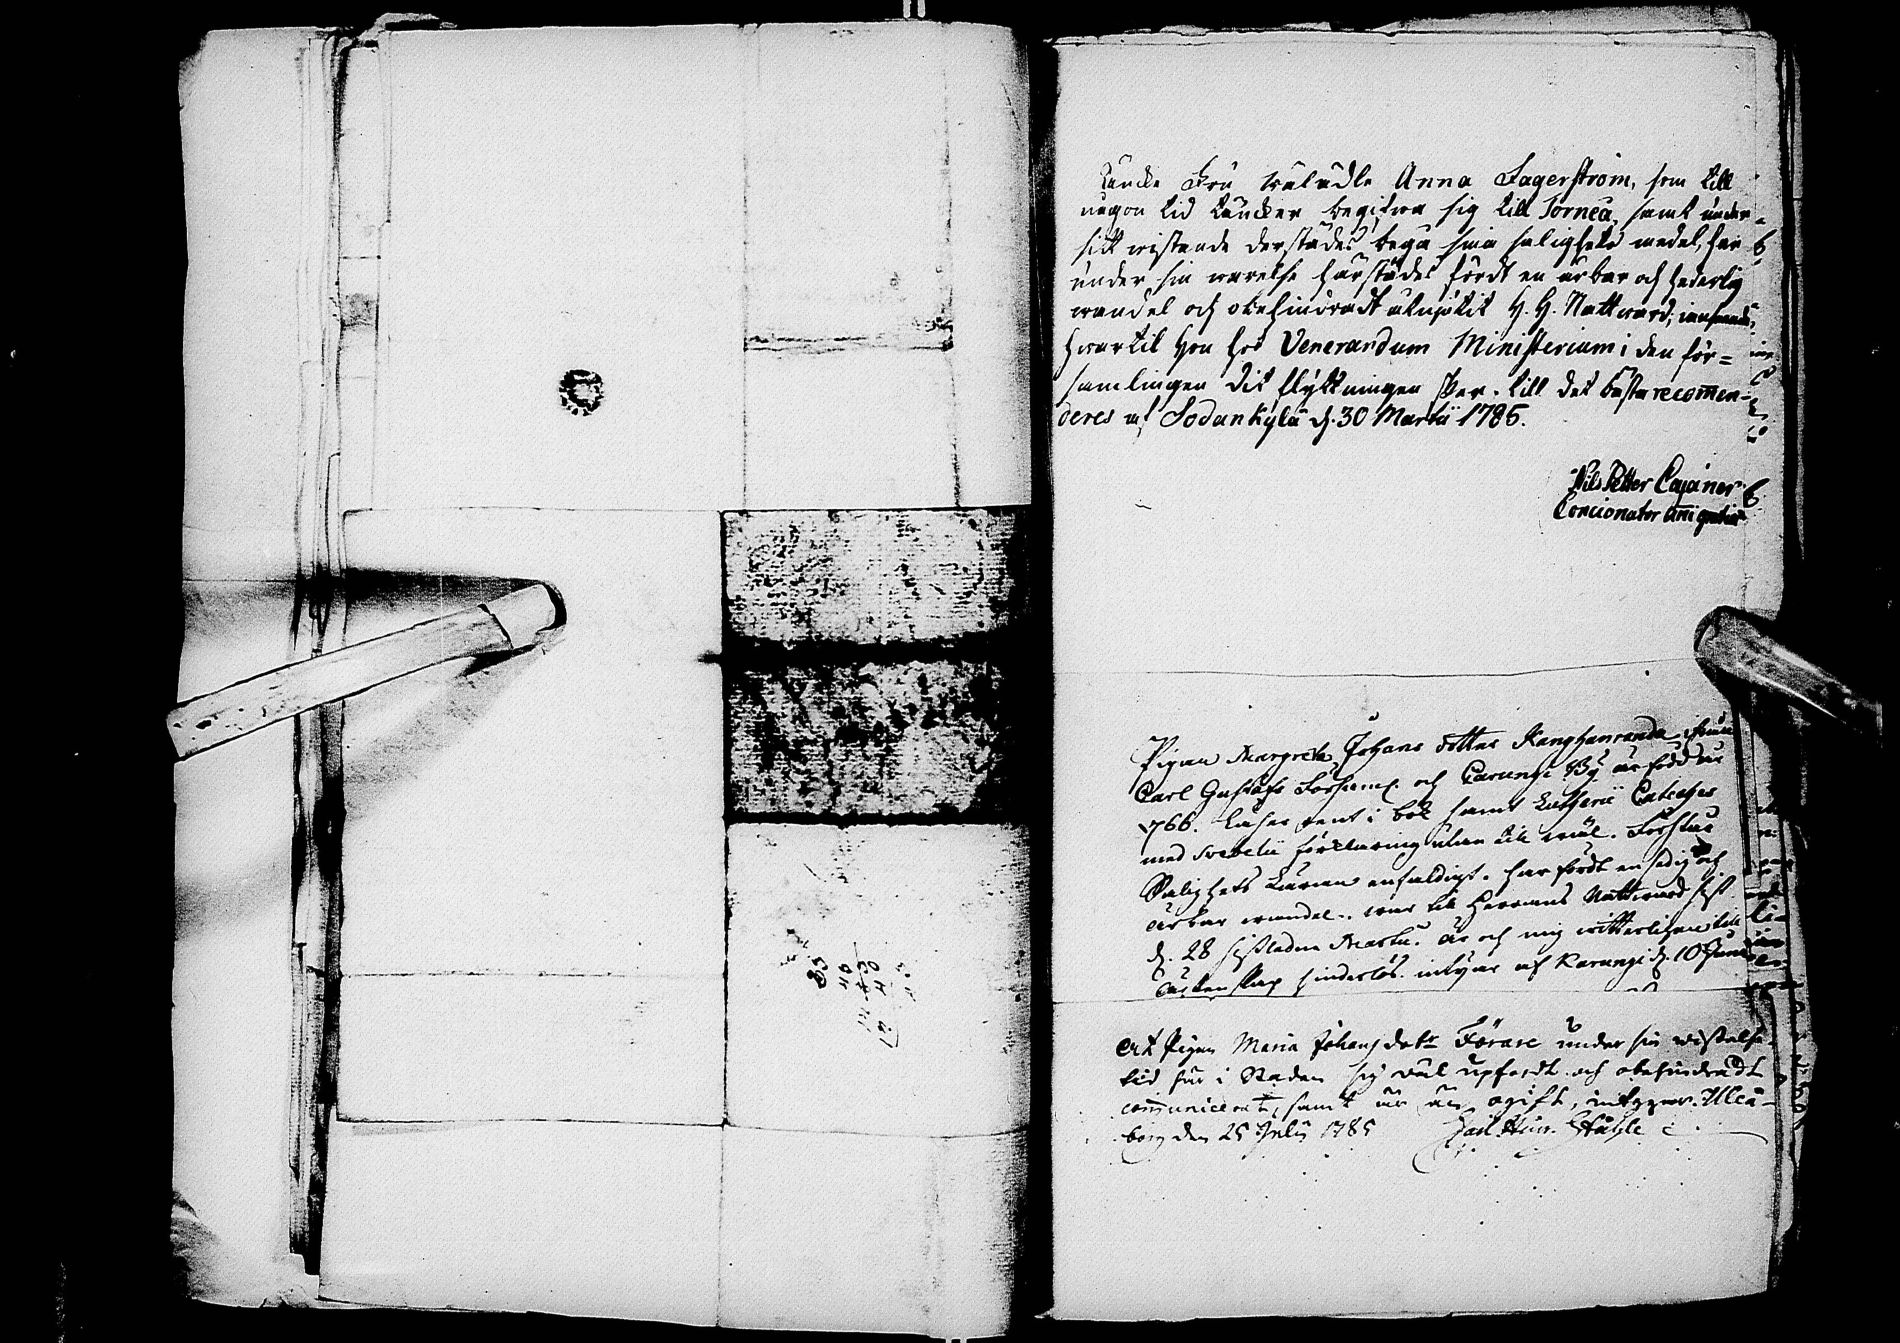 83
40
43
Encke Fru wäladle Anna Fagerström, som till
någon tid täncker begifwa sig till Torneå, samt under
sitt wistande derstädes begå sina salighets medel, har
under sin warelse härstädes fördt en ärbar och hederlig
wandel och obehindradt utnjutit H. H. Nattward;
hwartil Hon hos Venerandum Ministerium i den för=
samlingen dit flyttningen sker. till det bästa recommen=
deres af Sodankylä d. 30 Martii 1785.
Nils Petter Cajaner
Concionator
Pigan Margreta Johans dotter Kanghanranda ifrån
Carl Gustafs Församl. och Carungi By är född år
1766. Läser rent i bok samt Lutherii Cateches
med Svebelii förklaring utan till wäl. Förstår
Salighets Läran enfaldigt. har fördt en sedig och
ärbar wandel. war till Herrans Nattward sist
d. 28 sistledne Martii. är och mig witterligen till
äcktenskap hinderlös. intygar af Karungi d. 10 Junii
At Pigan Maria Johans dottr Förare under sin wistelse
tid här i Staden sig wäl upfördt och obehindradt
communicerat, samt är än ogift, intygar. Uleå=
borg den 25 Julii 1785 Carl Henr. Ståhle